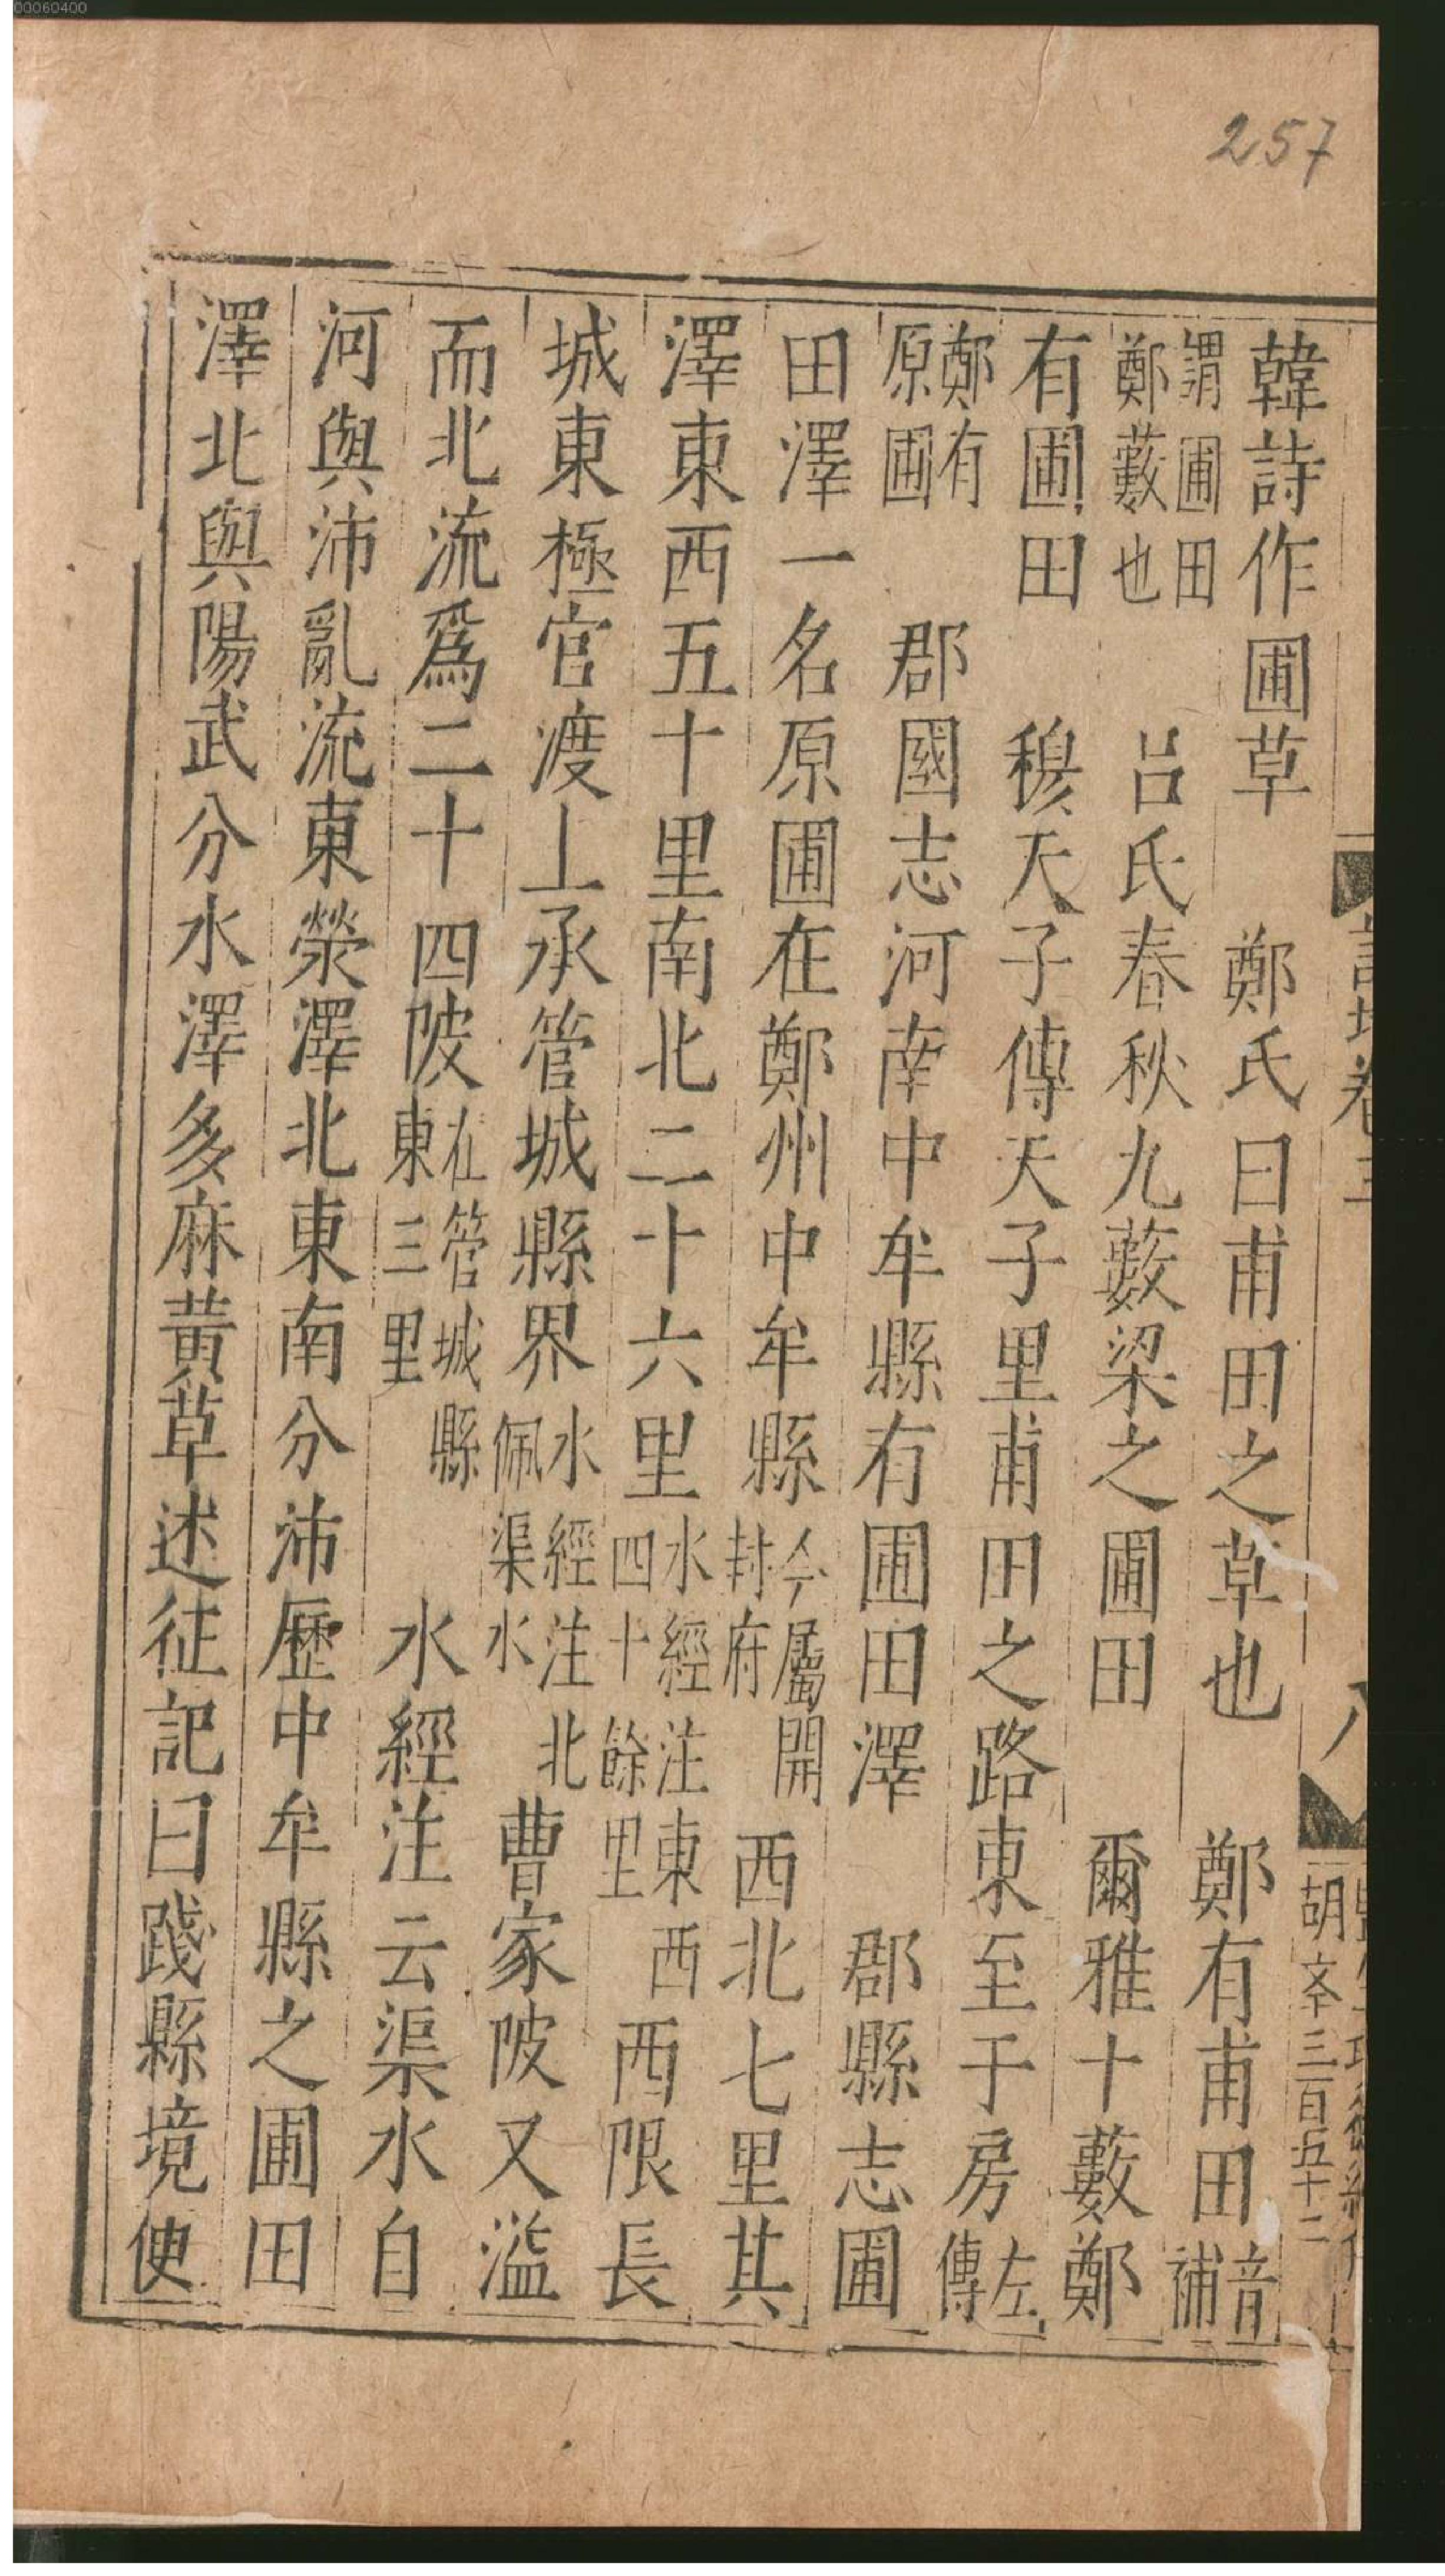 00060400
257
韓詩作圃草　鄭氏曰甫田之草也　鄭有甫田音補
謂圃田鄭藪也　呂氏春秋九藪梁之圃田　爾雅十藪鄭
有圃田　穆天子傳天子里甫田之路東至于房左傳
鄭有原圃　郡國志河南中牟縣有圃田澤　郡縣志圃
田澤一名原圃在鄭州中牟縣今屬開封府西北七里其
澤東西五十里南北二十六里水經注東西四十餘里西限長
城東極官渡上承管城縣界水經注北佩渠水曹家陂又溢
而北流爲二十四陂在管城縣東三里　水經注云渠水自
河與沛亂流東滎澤北東南分沛歷中牟縣之圃田
澤北與陽武分水澤多麻黃草述征記曰踐縣境便
胡文三百五十二